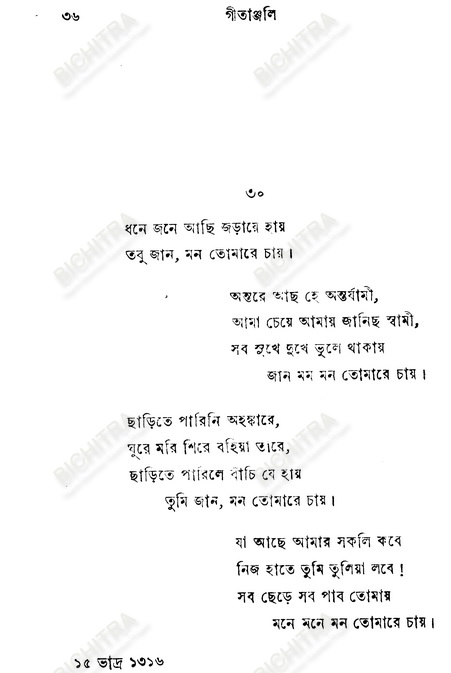 ৩৬
গীতাঞ্জলি
৩০
ধনে জনে আছি জড়ায়ে হায়
তবু জান, মন তোমারে চায়।
অন্তরে আছ হে অন্তর্যামী,
আমা চেয়ে আমায় জানিছ স্বামী,
সব সুখে দুখে ভুলে থাকায়
জান মম মন তোমারে চায়।
ছাড়িতে পারিনি অহঙ্কারে,
ঘুরে মরি শিরে বহিয়া তারে,
ছাড়িতে পারিলে বাঁচি যে হায়
তুমি জান, মন তোমারে চায়।
যা আছে আমার সকলি কবে
নিজ হাতে তুমি তুলিয়া লবে!
সব ছেড়ে সব পাব তোমায়
মনে মনে মন তোমারে চায়।
১৫ ভাদ্র ১৩১৬
BICHITRA
BICHITRA
BICHITRA
BICHITRA
BICHITRA
BICHITRA
BICHITRA
BICHITRA